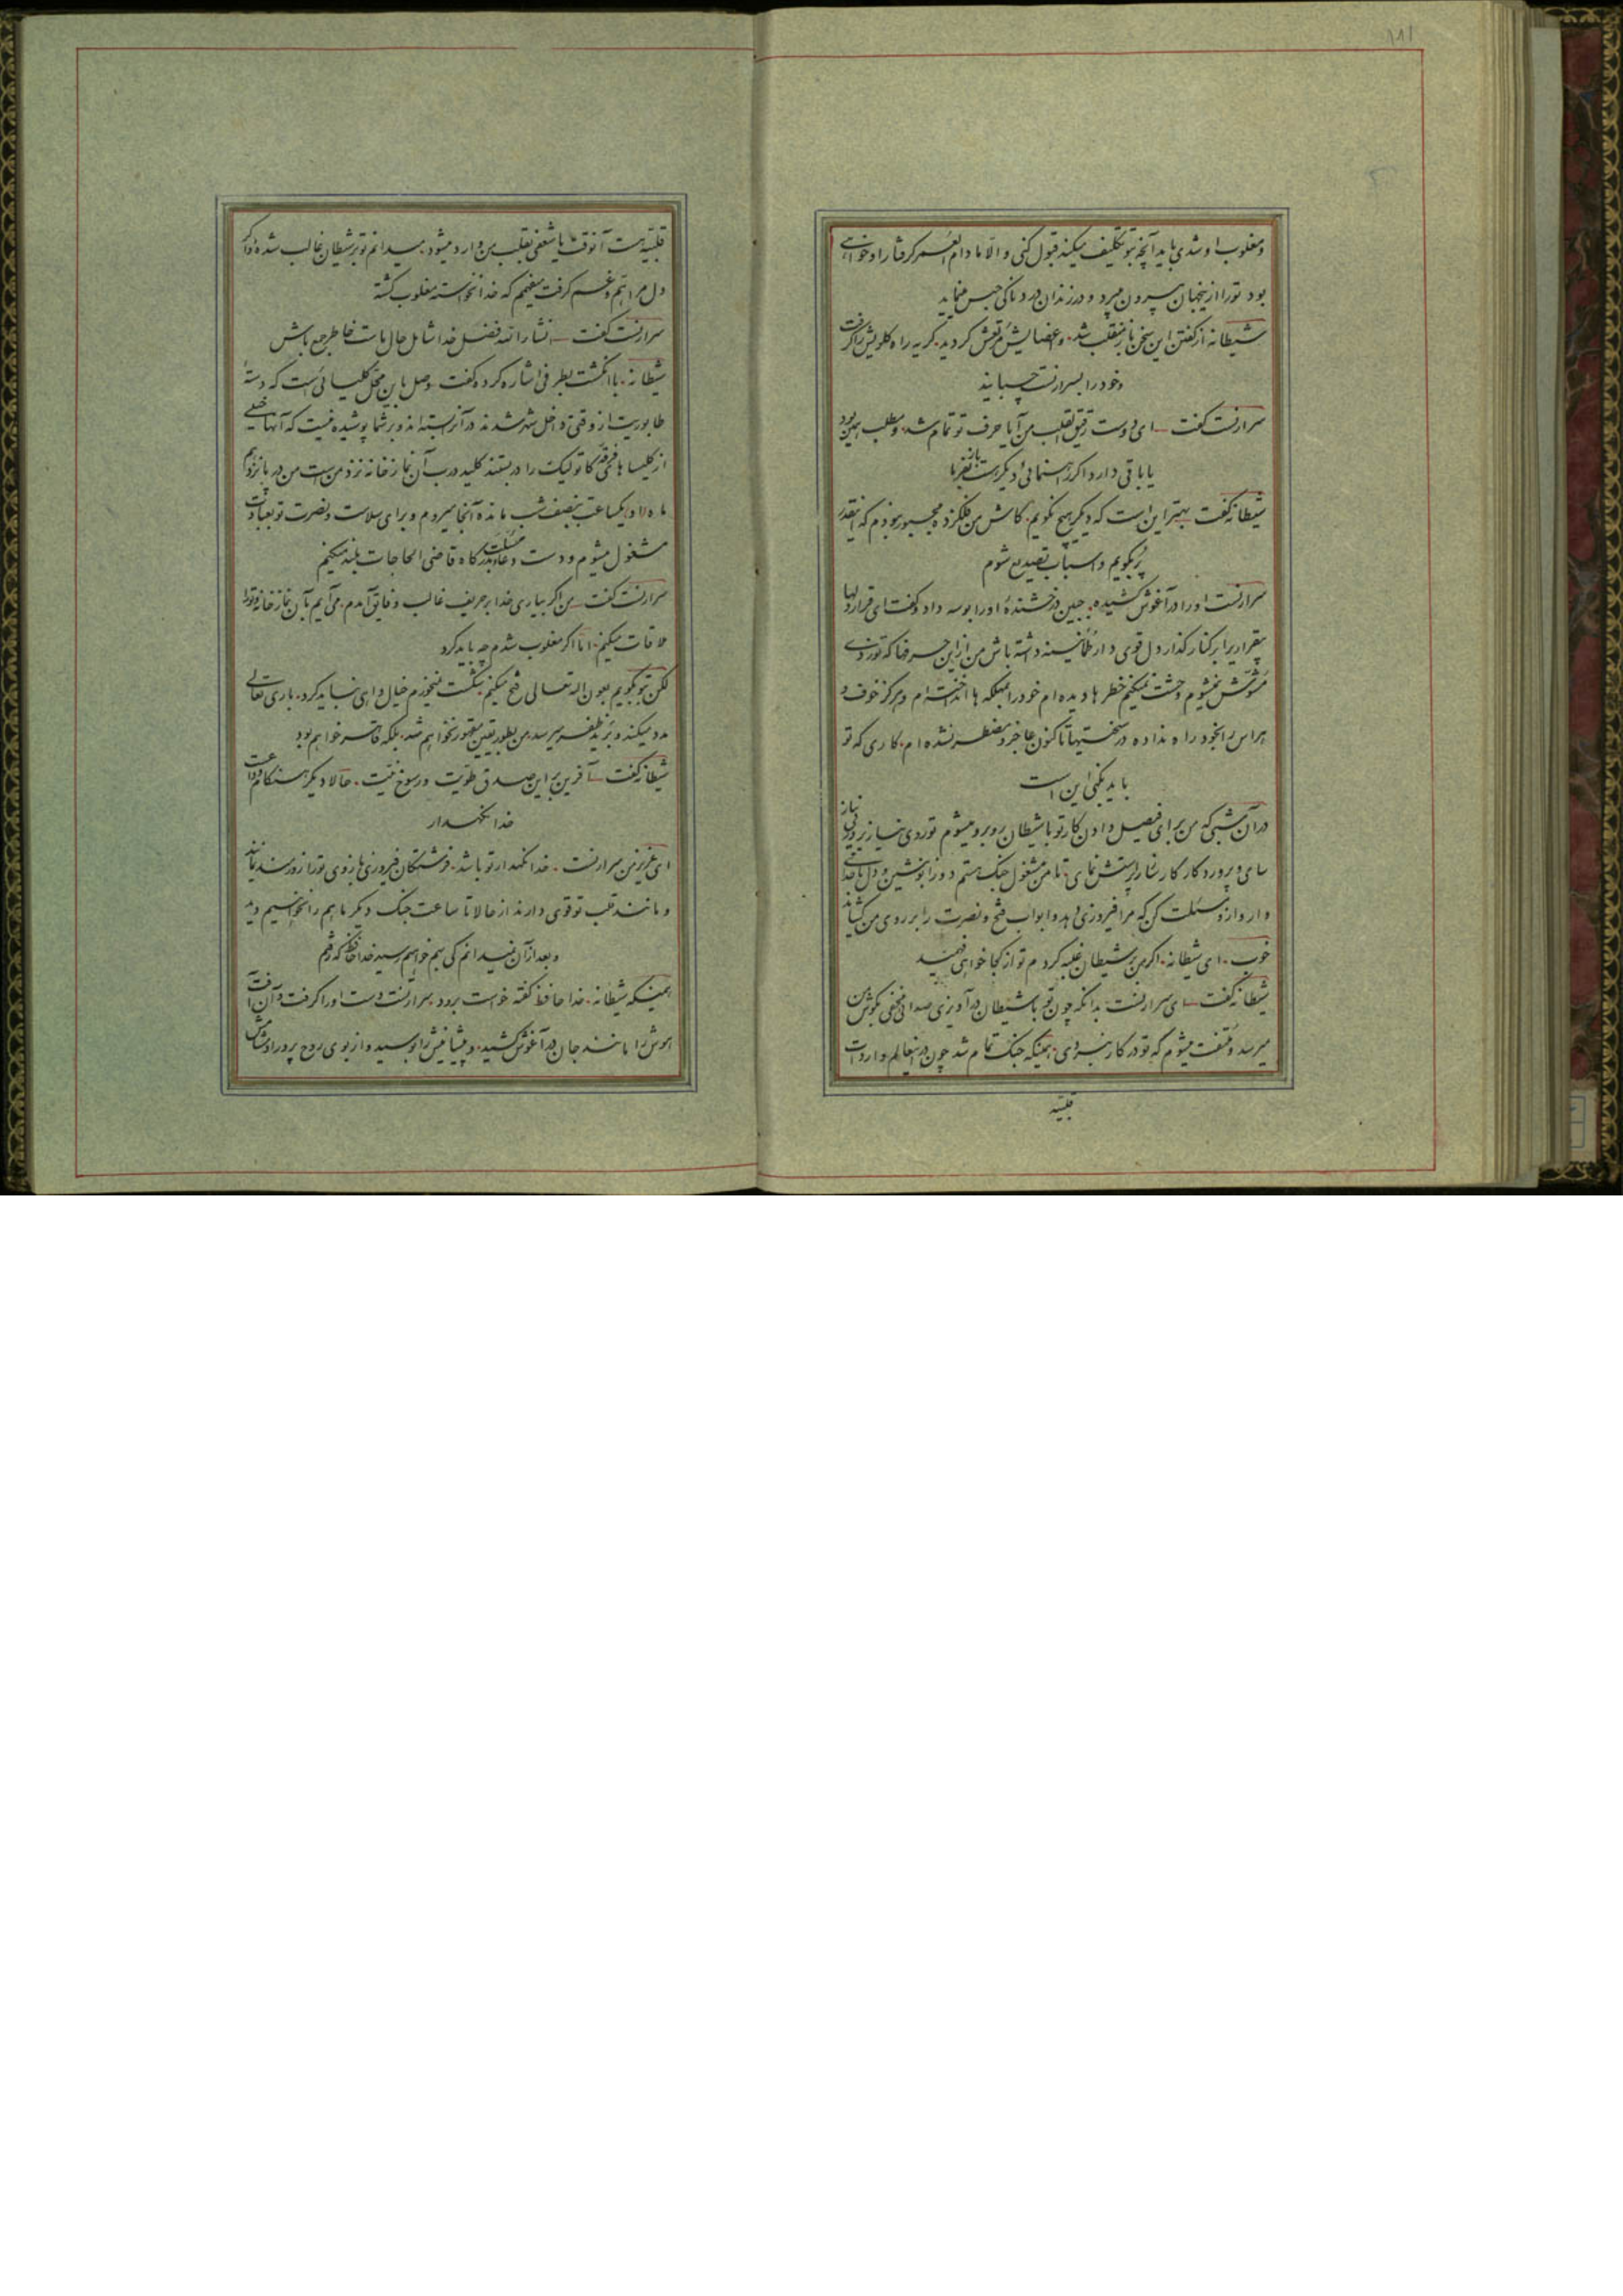 ۱۸۱
و مغلوب او شدی باید آنچه بتو تکلیف میکند قبول کنی و الّا مادام العمر گرفتار او خواهی
بود تو را از ینجهان بیرون میبرد و در زندان دردناکی حبس مینماید
شیطانه از گفتن این سخن باز منقلب شد. و اعضایش مرتعش گردید. گریه راه گلویش را گرفت
و خود را بسرارنست چسبانید
سرارنست گفت ای دوست رقیق القلب من آیا حرف تو تمام شد. و مطلب همین بود
یا باقی دارد اگر راهنمائی دیگر هست باز بفرما
شیطانه گفت بهتر این است که دیگر هیچ نگویم. کاش من فلکزده مجبور نبودم که اینقدر
پُر بگویم و اسباب تصدیع شوم
سرارنست او را در آغوش کشیده. جبین درخشندهٔ او را بوسه داد و گفت ای قرار دلها
بیقراری را بر کنار گذار دل قوی دار طمأنینه داشته باش من از این حرفها که تو زدی
مُشوّش نمیشوم وحشت نمیکنم خطرها دیده‌ام خود را بمهلکه ها انداخته‌ام و هرگز خوف و
هراس را بخود راه نداده در سختیها تا کنون عاجز و مضطر نشده‌ام. کاری که تو
باید بکنی این است
در آن شبی که من برای فیصل دادن کار تو با شیطان روبرو میشوم تو روی نیاز بر زمین
سای و پروردگار کارساز را پرستش نمای. تا من مشغول جنگ هستم دو زانو بنشین و دل با خدای
دار و از او مسئلت کن که مرا فیروزی دهد و ابواب فتح و نصرت را بر روی من گشاید
خوب. ای شیطانه. اگر من بر شیطان غلبه کردم تو از کجا خواهی فهمید
شیطانه گفت ای سرارنست بدانکه چون تو با شیطان درآویزی صدائی مخفی بگوش من
میرسد و ملتفت میشوم که تو در کار نبردی. همینکه جنگ تمام شد چون در اینعالم واردات
قلبیّه
قلبیّه هست آنوقت یا شعفی بقلب من وارد میشود. میدانم تو بر شیطان غالب شدهٔ و اگر
دل مرا همّ و غم گرفت میفهمم که خدا نخواسته مغلوب گشتهٔ
سرارنست گفت انشاء الله فضل خدا شامل حال ماست خاطر جمع باش
شیطانه. با انگشت بطرفی اشاره کرده گفت وصل باین محل کلیسائی است که دستهٔ
طابوریت از وقتی داخل شهر شدند در آنرا بسته‌اند و بر شما پوشیده نیست که آنها خیلی
از کلیساها فرقهٔ کاتولیک را در بستند کلید درب آن نمازخانه نزد من است من در پانزدهم
ماه یکساعت بنصف شب مانده آنجا میروم و برای سلامت و نصرت تو بعبادت
مشغول میشوم و دست دعا و مسئلت بدرگاه قاضی الحاجات بلند میکنم
سرارنست گفت من اگر بیاری خدا بر حریف غالب و فایق آمدم. می‌آیم بآن نمازخانه و تو را
ملاقات میکنم. امّا اگر مغلوب شدم چه باید کرد
لکن بتو بگویم بعون اله تعالی فتح میکنم شکست نمیخورم خیال واهی نباید کرد. باری تعالی
مدد میکند و بُرَید ظفر میرسد من بطور یقین مقهور نخواهم شد. بلکه قاهر خواهم بود
شیطانه گفت آفرین بر این صدق طوّیت و رسوخ نیّت. حالا دیگر هنگام وداعت
خدا نگهدار
ای عزیز من سرارنست. خدا نگهدار تو باشد. فرشتگان فیروزی بازوی تو را زورمند نمایند
و مانند قلب تو قوی دارند از حالا تا ساعت جنگ دیگر ما هم را نخواهیم دید
و بعد از آن نمیدانم کی بهم خواهیم رسید خدا حافظ که رفتم
همینکه شیطانه. خدا حافظ گفته خواست برود. سرارنست دست او را گرفت و آن آفت
هوش را مانند جان در آغوش کشید. و پیشانیش را بوسید و از بوی روح پرور او مشام